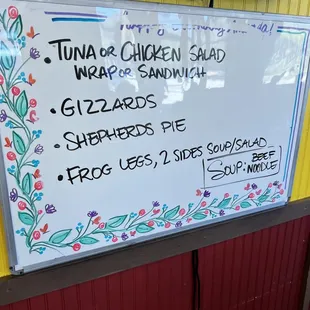 • TUNA OR CHICKEN SALAD
WRAP OR SANDWICH
• GIZZARDS
• SHEPHERDS PIE
• FROG LEGS, 2 SIDES SOUP/SALAD
SOUP: BEEF
NOODLE